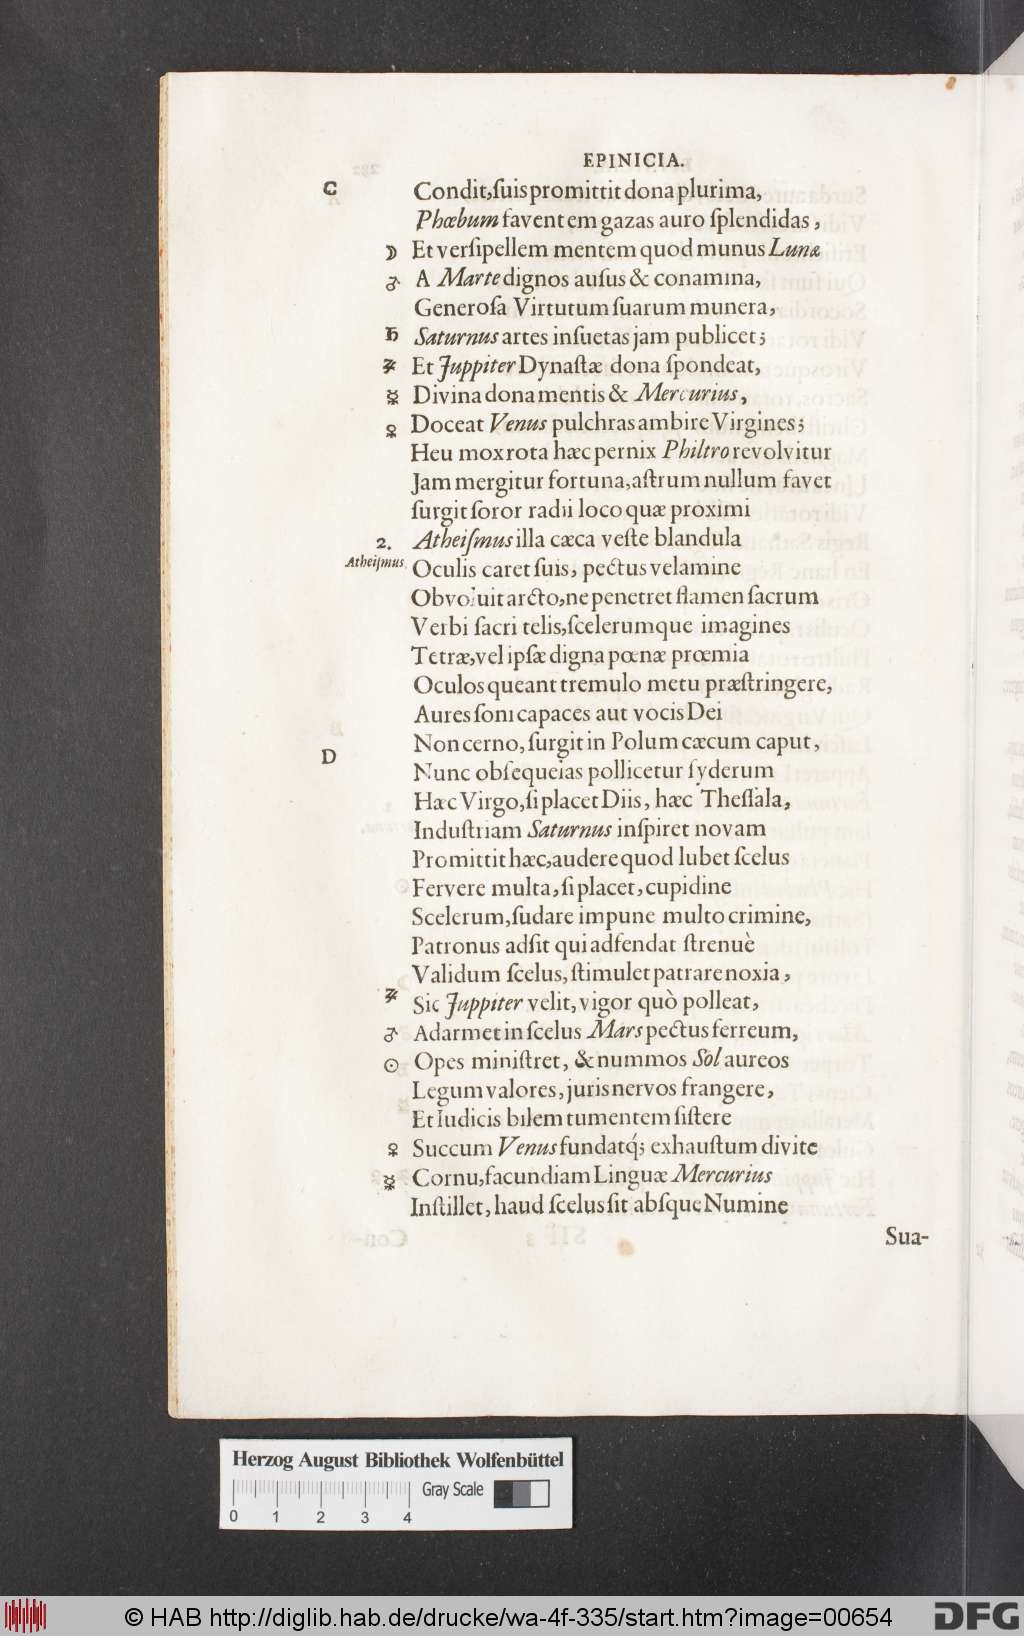 EPINICIA.
C Condit, ſuis promittit dona plurima,
Phœbum faventem gazas auro ſplendidas,
☽ Et verſipellem mentem quod munus Lunæ
♂ A Marte dignos auſus & conamina,
Generoſa Virtutum ſuarum munera,
♄ Saturnus artes inſuetas jam publicet;
♃ Et Juppiter Dynaſtæ dona ſpondeat,
☿ Divina dona mentis & Mercurius,
♀ Doceat Venus pulchras ambire Virgines;
Heu mox rota hæc pernix Philtro revolvitur
Jam mergitur fortuna, aſtrum nullum favet
ſurgit ſoror radii loco quæ proximi
2. Atheiſmus illa cæca veſte blandula
Atheiſmus. Oculis caret ſuis, pectus velamine
Obvoluit arcto, ne penetret flamen ſacrum
Verbi ſacri telis, ſcelerumque imagines
Tetræ, vel ipſæ digna pœnæ prœmia
Oculos queant tremulo metu præſtringere,
Aures ſoni capaces aut vocis Dei
Non cerno, ſurgit in Polum cæcum caput,
D Nunc obſequeias pollicetur ſyderum
Hæc Virgo, ſi placet Diis, hæc Theſſala,
Induſtriam Saturnus inſpiret novam
Promittit hæc, audere quod lubet ſcelus
Fervere multa, ſi placet, cupidine
Scelerum, ſudare impune multo crimine,
Patronus adſit qui adfendat ſtrenuè
Validum ſcelus, ſtimulet patrare noxia,
♃ Sic Juppiter velit, vigor quò polleat,
♂ Adarmet in ſcelus Mars pectus ferreum,
☉ Opes miniſtret, & nummos Sol aureos
Legum valores, juris nervos frangere,
Et Iudicis bilem tumentem ſiſtere
♀ Succum Venus fundatq́; exhauſtum divite
☿ Cornu, facundiam Linguæ Mercurius
Inſtillet, haud ſcelus ſit abſque Numine
Sua-
Herzog August Bibliothek Wolfenbüttel
Gray Scale
0 1 2 3 4
© HAB http://diglib.hab.de/drucke/wa-4f-335/start.htm?image=00654
DFG